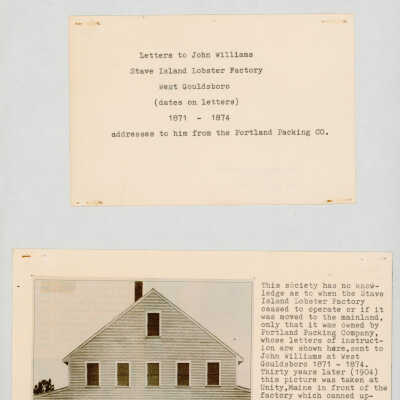 Letters to John Williams
Stave Island Lobster Factory
West Gouldsboro
(dates on letters)
1871 - 1874
addresses to him from the Portland Packing CO.
This society has no know-
ledge as to when the Stave
Island Lobster Factory
ceased to operate or if it
was moved to the mainland,
only that it was owned by
Portland Packing Company,
whose letters of instruct-
ion are shown here,sent to
John Williams at West
Gouldsboro 1871 - 1874.
Thirty years later (1904)
this picture was taken at
Unity,Maine in front of the
factory which canned up-